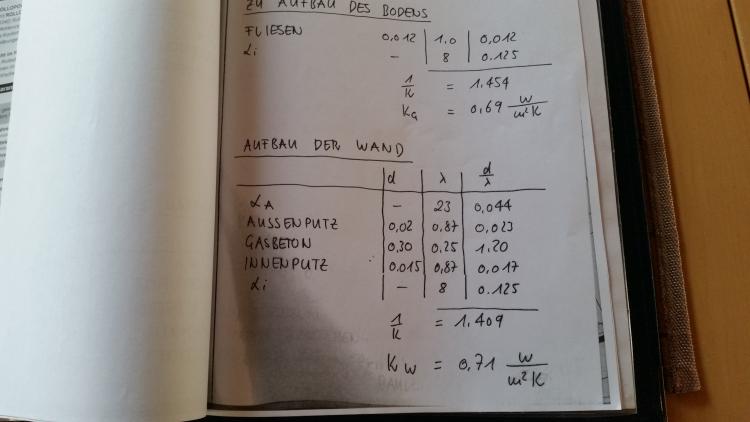 ZU AUFBAU DES BODENS
FLIESEN 0,012 1.0 0,012
αi – 8 0.125
1/K = 1.454
KG = 0,69 W/m²K
AUFBAU DER WAND
d λ d/λ
αA – 23 0,044
AUSSENPUTZ 0,02 0,87 0,023
GASBETON 0,30 0,25 1,20
INNENPUTZ 0.015 0,87 0,017
αi – 8 0.125
1/K = 1.409
KW = 0,71 W/m²K